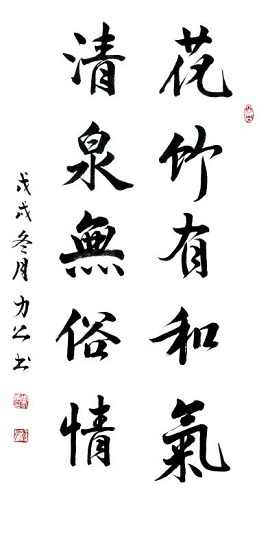 花竹有和氣
清泉無俗情
戊戌冬月力公書